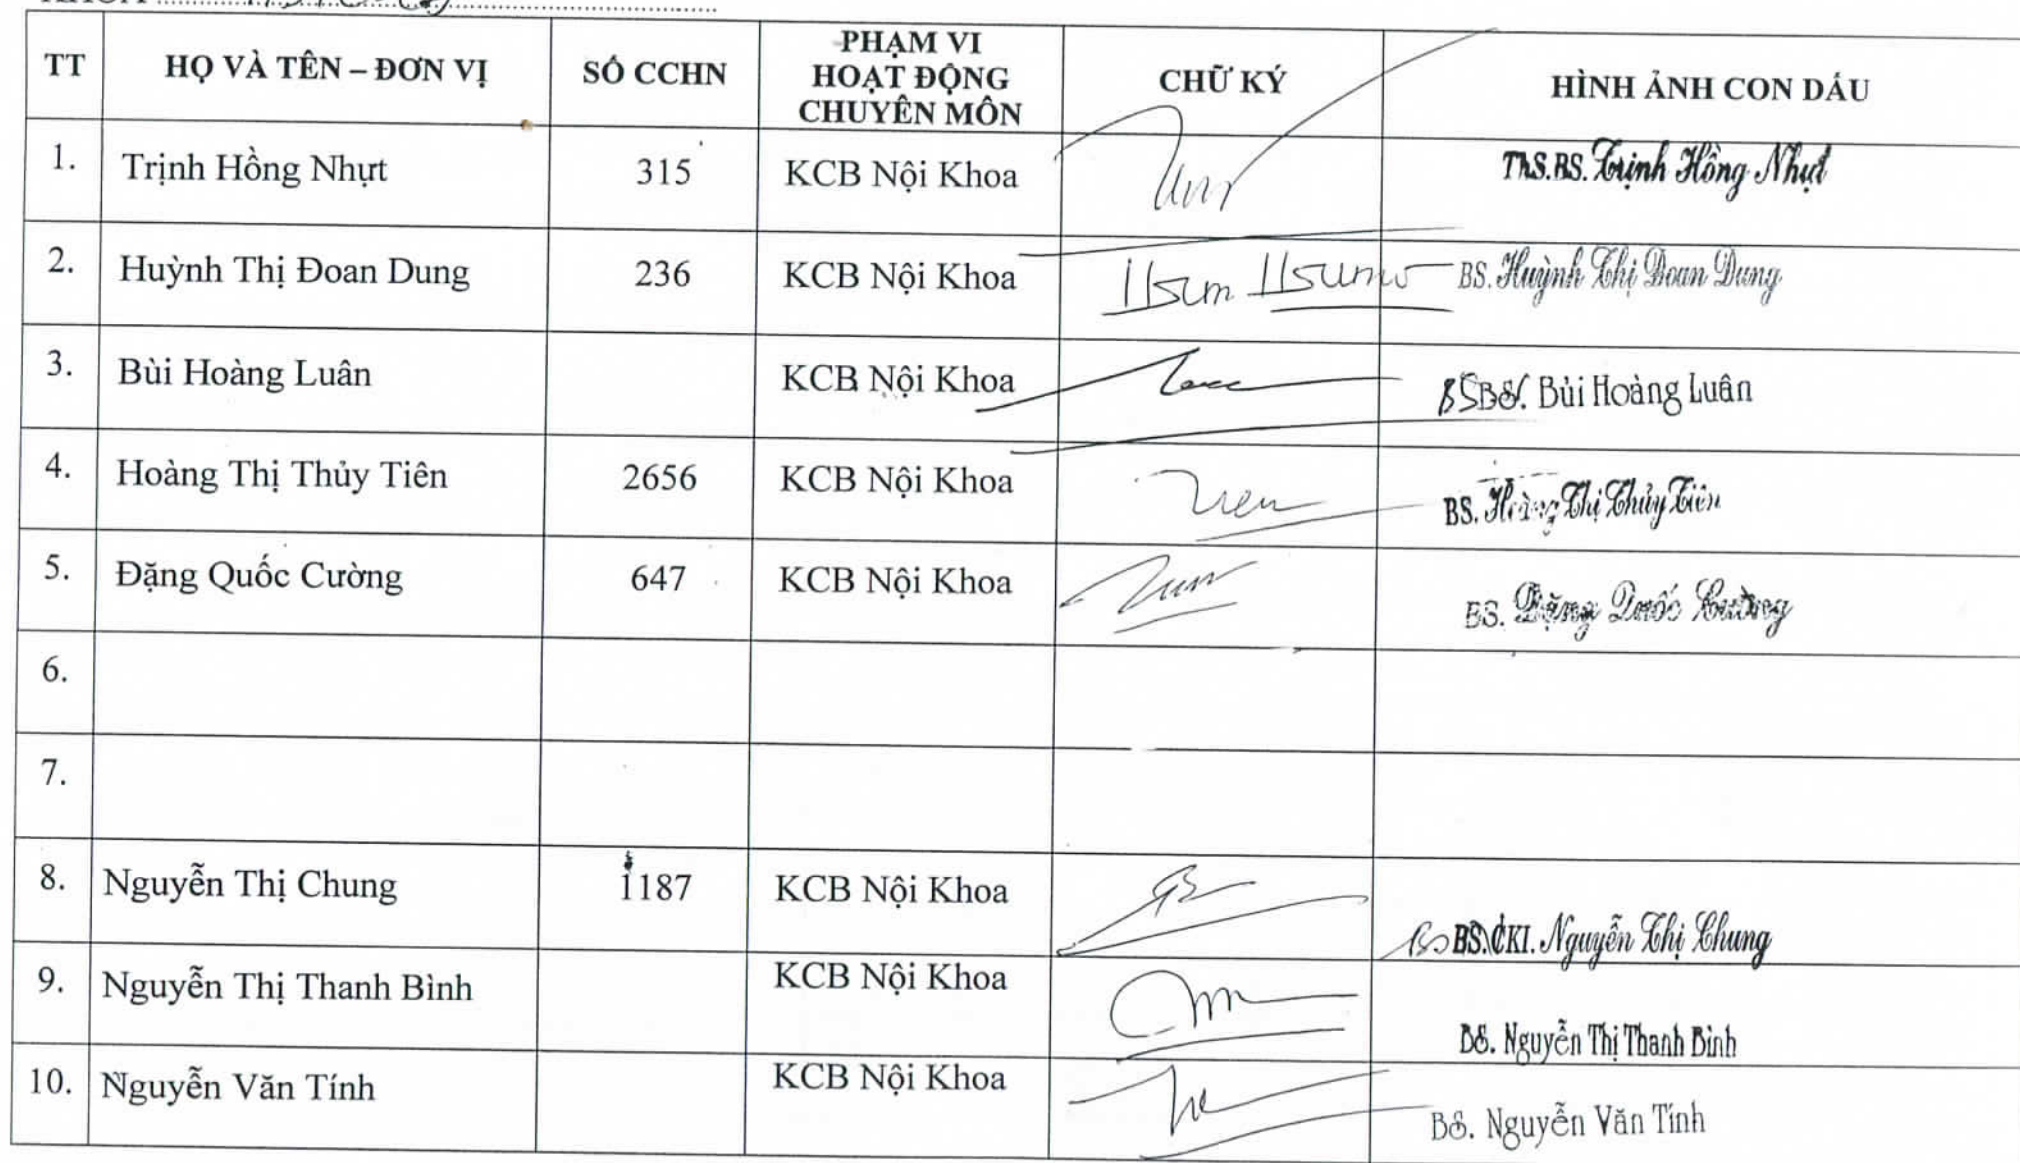 TT HỌ VÀ TÊN – ĐƠN VỊ SỐ CCHN PHẠM VI HOẠT ĐỘNG CHUYÊN MÔN CHỮ KÝ HÌNH ẢNH CON DẤU
1. Trịnh Hồng Nhựt 315 KCB Nội Khoa ThS.BS. Trịnh Hồng Nhựt
2. Huỳnh Thị Đoan Dung 236 KCB Nội Khoa BS. Huỳnh Thị Đoan Dung
3. Bùi Hoàng Luân KCB Nội Khoa BS. Bùi Hoàng Luân
4. Hoàng Thị Thủy Tiên 2656 KCB Nội Khoa BS. Hoàng Thị Thủy Tiên
5. Đặng Quốc Cường 647 KCB Nội Khoa BS. Đặng Quốc Cường
6.
7.
8. Nguyễn Thị Chung 1187 KCB Nội Khoa BS.CKI. Nguyễn Thị Chung
9. Nguyễn Thị Thanh Bình KCB Nội Khoa BS. Nguyễn Thị Thanh Bình
10. Nguyễn Văn Tính KCB Nội Khoa BS. Nguyễn Văn Tính